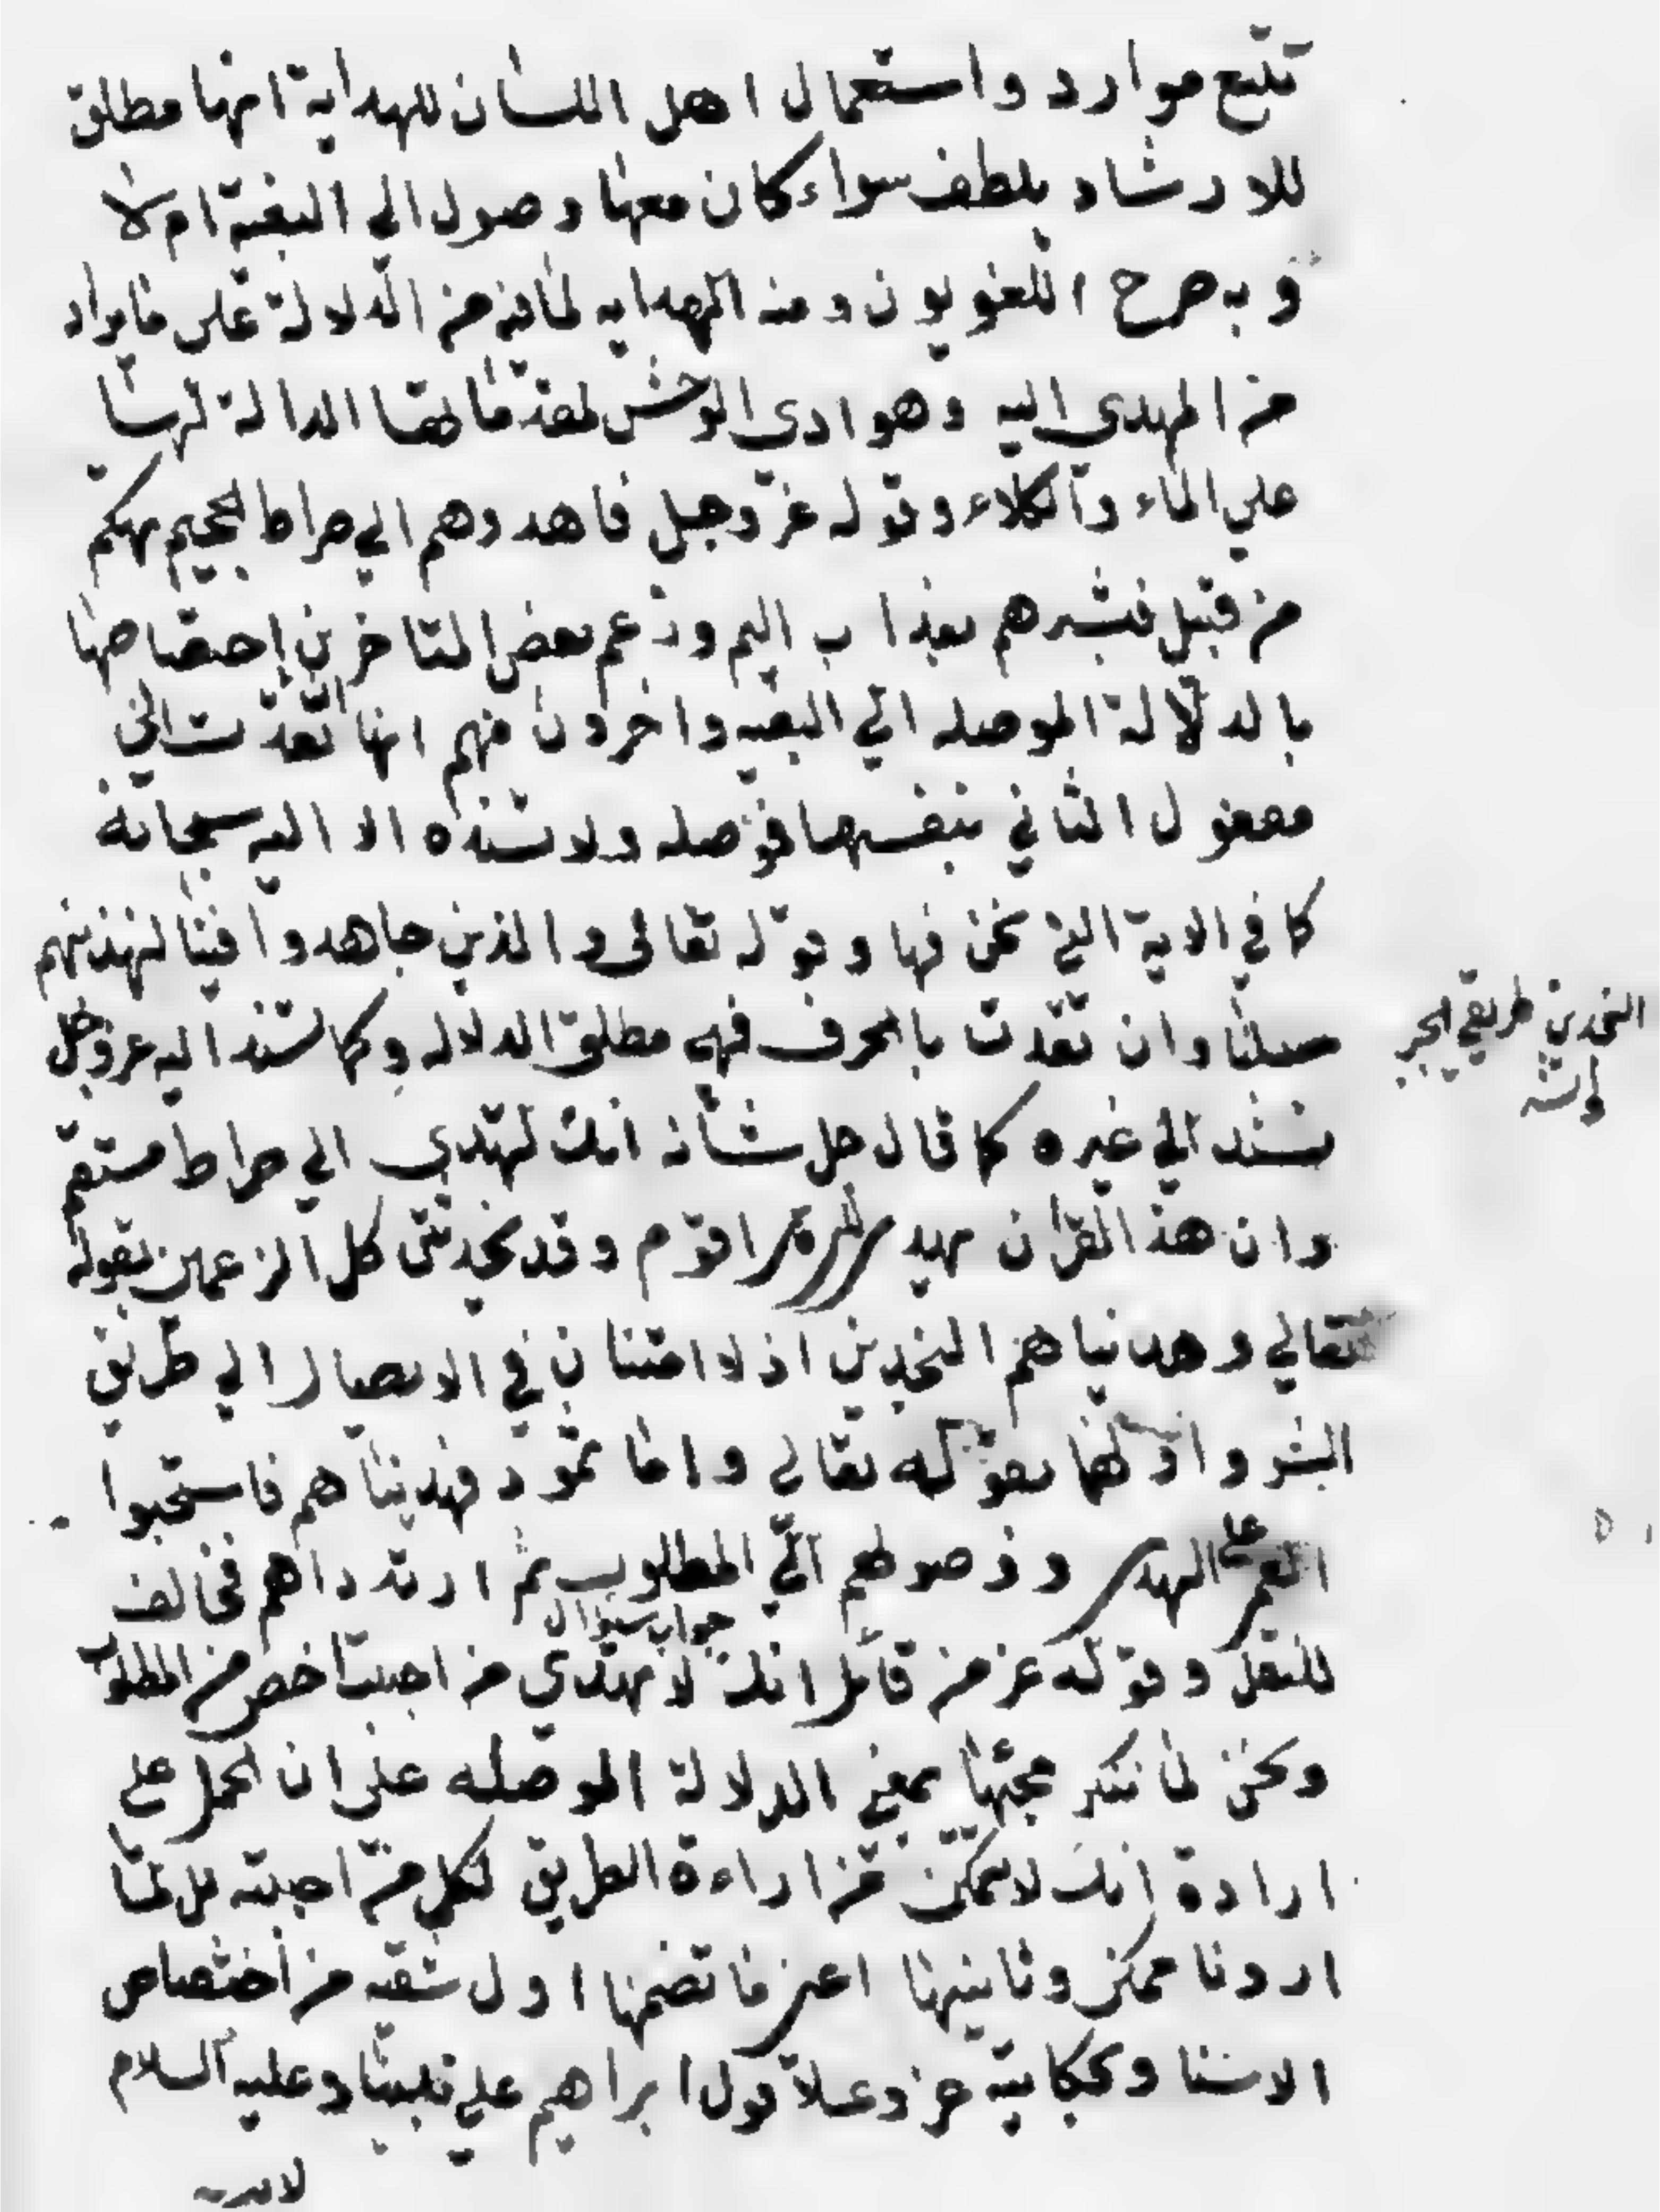 تتبع موارد واستعمال اهل اللسان للهداية انها مطلق
للارشاد بلطف سواء كان معها وصول الي البغية ام لا
و به صرح اللغويون ومنه الهدايه لما فيه من الدلالة على ما يراد
من المهدي اليه وهوادى الوحش لمقدماتها الدالة لها
علي الماء والكلاء وقوله عز وجل فاهدوهم الي صراط الجحيم تهكم
من قبيل فبشرهم بعذاب اليم وزعم بعض المتاخرين إختصاصها
بالدلالة الموصله الي البغيه واخرون منهم انها ان تعدت الي
مفعول الثاني بنفسها فموصله ولا تسند الا اليه سبحانه
كما في الاية التي نحن فيها وقوله تعالى والذين جاهدوا فينا لنهدينهم
سبلنا وان تعدت بالحرف فهي مطلق الدلاله وكما تسند اليه عز وجل
تسند الي غيره كما قال جل شانه انك لتهدي الي صراط مستقيم
وان هذا القران يهدي للتي هي اقوم وقد يخدش كل الزعمين بقوله
تعالي وهديناهم النجدين اذ لا امتنان في الايصال الي طريق
النجدين طريقي الخير
والشر
الشر واولهما بقوله تعالي واما ثمود فهديناهم فاستحبوا
العمى على الهدى ووصولهم الي المطلوب ثم ارتدادهم مخالف
جواب سؤال
للنقل وقوله عز من قائل انك لا تهتدي من احببت اخص من المطلوب
ونحن لا ننكر مجيئها بمعنى الدلالة الموصله على ان الحمل على
ارادة انك لا تتمكن من اراءة الطريق لكل من احببته بل لمن
اردنا ممكن وثانيهما اعنى ما تضمنها اول شقيه من اختصاص
الاسناد بحكايته عز وعلا قول ابراهيم علي نبينا وعليه السلام
لابيه